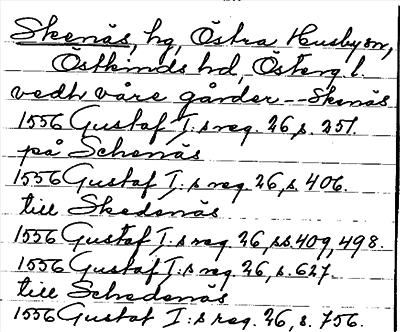 Skenäs, hg, Östra Husby sn,
Östkinds hd, Österg. l.
vedh våre gårder -- Skenäs
1556 Gustaf I:s reg. 26, s. 251.
på Schenäs
1556 Gustaf I:s reg 26, s. 406.
till Skedenäs
1556 Gustaf I:s reg 26, ss. 409, 498.
1556 Gustaf I:s reg. 26, s. 627.
till Schedenäs
1556 Gustaf I:s reg 26, s. 756.